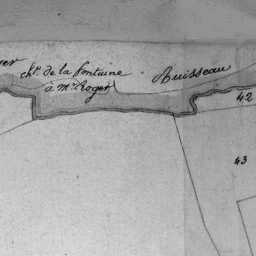 ch.ⁿ de la fontaine
à Mr. Roger
Ruisseau
42
43